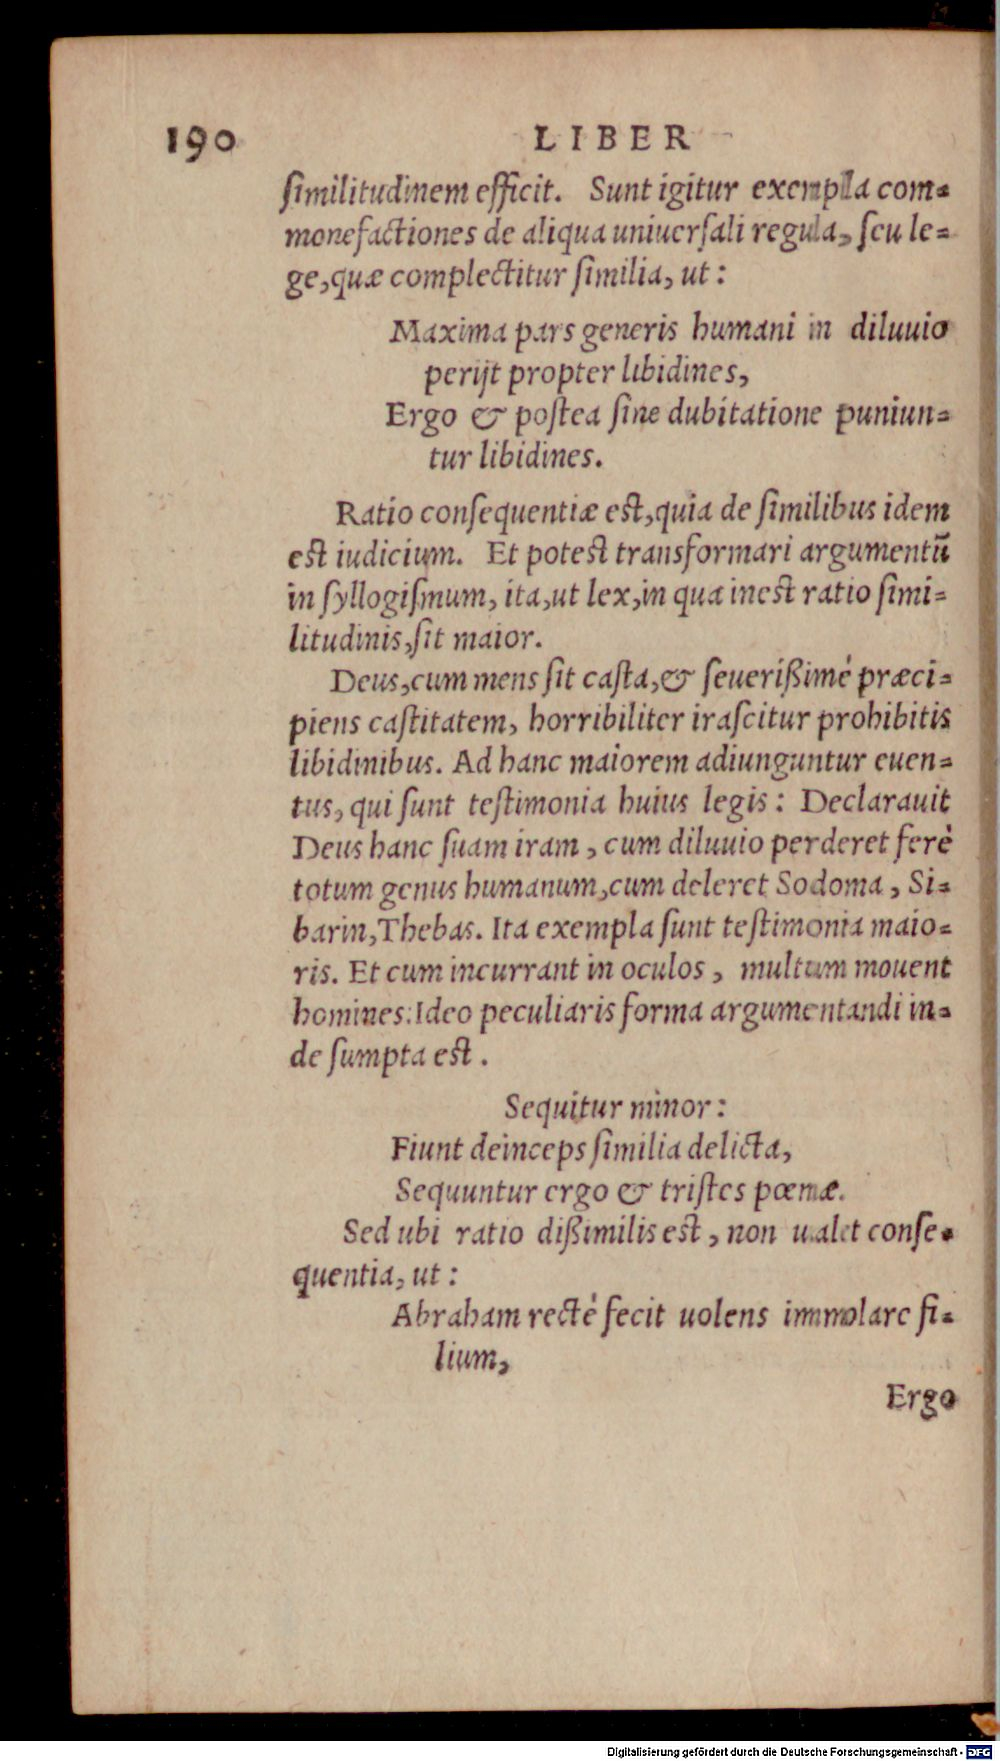 190 LIBER
ſimilitudinem efficit. Sunt igitur exempla com⸗
monefactiones de aliqua uniuerſali regula, ſeu le⸗
ge, quæ complectitur ſimilia, ut :
Maxima pars generis humani in diluuio
perijt propter libidines,
Ergo & poſtea ſine dubitatione puniun⸗
tur libidines.
Ratio conſequentiæ eſt, quia de ſimilibus idem
eſt iudicium. Et poteſt transformari argumentū
in ſyllogiſmum, ita, ut lex, in qua ineſt ratio ſimi⸗
litudinis, ſit maior.
Deus, cum mens ſit caſta, & ſeuerißimè præci⸗
piens caſtitatem, horribiliter iraſcitur prohibitis
libidinibus. Ad hanc maiorem adiunguntur euen⸗
tus, qui ſunt teſtimonia huius legis : Declarauit
Deus hanc ſuam iram, cum diluuio perderet ferè
totum genus humanum, cum deleret Sodoma, Si⸗
barin, Thebas. Ita exempla ſunt teſtimonia maio⸗
ris. Et cum incurrant in oculos, multum mouent
homines: Ideo peculiaris forma argumentandi in⸗
de ſumpta eſt.
Sequitur minor :
Fiunt deinceps ſimilia delicta,
Sequuntur ergo & triſtes pœnæ.
Sed ubi ratio dißimilis eſt, non ualet conſe⸗
quentia, ut :
Abraham rectè fecit uolens immolare fi⸗
lium,
Ergo
Digitalisierung gefördert durch die Deutsche Forschungsgemeinschaft - DFG